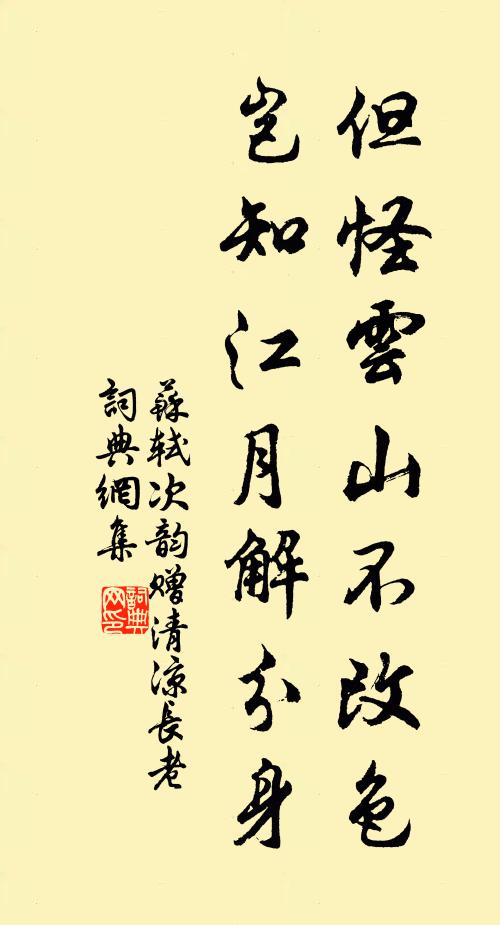 但怪雲山不改色
豈知江月解分身
蘇軾次韵赠清涼長老
詞典網集
詞典网印